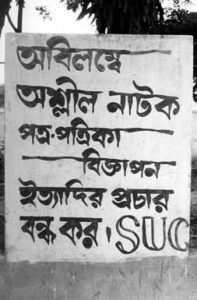 অবিলম্বে
অশ্লীল নাটক
পত্র-পত্রিকা
বিজ্ঞাপন
ইত্যাদির প্রচার
বন্ধ কর। SUC